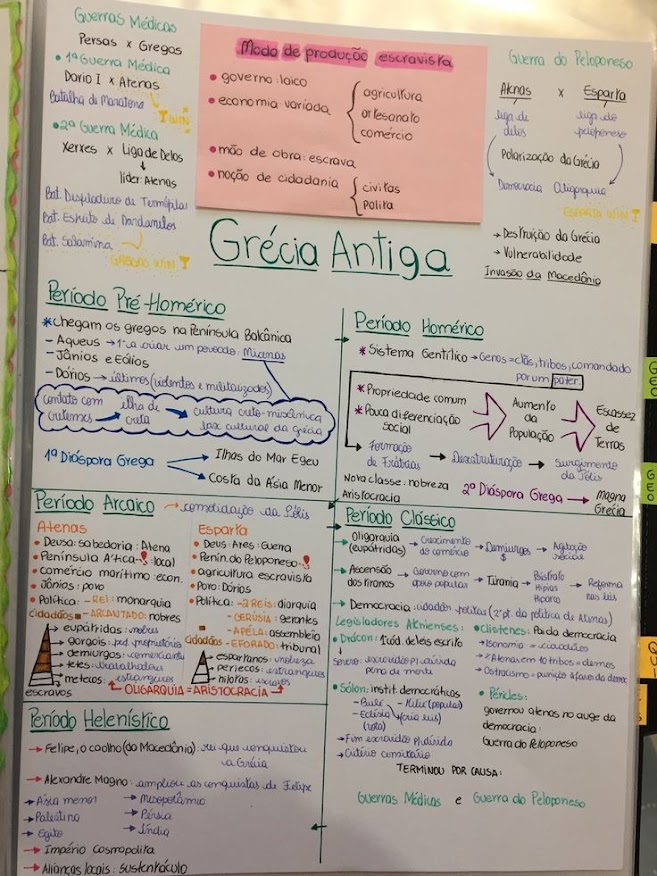 Guerras Médicas
Persas x Gregos
• 1ª Guerra Médica
Dario I x Atenas
Batalha de Maratona
WIN
• 2ª Guerra Médica
Xerxes x Liga de Delos
líder: Atenas
Bat. Desfiladeiro de Termópilas
Bat. Estreito de Dardanelos
Bat. Salamina
GREGOS WIN
Modo de produção escravista
• governo: laico
• economia variada
agricultura
artesanato
comércio
• mão de obra: escrava
• noção de cidadania
civitas
polita
Guerra do Peloponeso
Atenas x Esparta
liga de delos
liga do peloponeso
Polarização da Grécia
Democracia Oligarquia
ESPARTA WIN
→ Destruição da Grécia
→ Vulnerabilidade
Invasão da Macedônia
Grécia Antiga
Período Pré-Homérico
* chegam os gregos na Península Balcânica
- Aqueus → 1º a criar um povoado: Micenas
- Jônios e Eólios
- Dórios → últimos (violentos e militarizados)
contato com cretenses → ilha de creta → cultura creto-micênica
base cultural da grécia
1ª Diáspora Grega
Ilhas do Mar Egeu
Costa da Ásia Menor
Período Homérico
* Sistema Gentílico → Genos = clãs, tribos, comandado
por um pater.
* Propriedade comum
* Pouca diferenciação social
Aumento da População
Escassez de Terras
Formação de Frátrias → Desestruturação → Surgimento da Pólis
Nova classe: nobreza
Aristocracia
2ª Diáspora Grega → Magna Grécia
Período Arcaico → consolidação da Pólis
Atenas
• Deusa: sabedoria: Atena
• Península Ática: local
• comércio marítimo: econ.
• Jônios: povo
• Política: - REI: monarquia
cidadãos - ARCANTADO: nobres
eupátridas: nobres
georgóis: peq. proprietários
demiurgos: comerciantes
tetes: trabalhadores
metecos: estrangeiros
escravos
Esparta
• Deus: Ares: Guerra
• Penín. do Peloponeso
• agricultura escravista
• Povo: Dórios
• Política: - 2 REIS: diarquia
- GERÚSIA: gerantes
- APÉLA: assembleia
cidadãos - EFORADO: tribunal
espartanos: nobreza
periecos: estrangeiros
hilotas: escravos
OLIGARQUIA = ARISTOCRACIA
Período Clássico
→ Oligarquia (eupátridas) → Crescimento do comércio → Demiurgos → Agitação social
→ Ascensão dos tiranos → Governo com apoio popular → Tirania → Psístrato Hípias Hiparco → Reforma nas leis
→ Democracia: cidadãos politas (2ª pt. da política de Atenas)
Legisladores Atenienses:
• Drácon: 1º cód. de leis escrito
Severo: escravidão p/ dívida
pena de morte
• Sólon: instit. democráticas
- Bulé
- Eclésia (vota)
(cria leis)
→ Fim escravidão p/ dívida
→ Critério censitário
• Clístenes: Pai da democracia
→ Isonomia = cidadãos
→ Atenas em 10 tribos = demos
→ Ostracismo = punição a favor da democ.
• Péricles:
governou atenas no auge da
democracia:
Guerra do Peloponeso
TERMINOU POR CAUSA:
Guerras Médicas e Guerra do Peloponeso
Período Helenístico
→ Felipe, o coalho (da Macedônia): rei que conquistou
a Grécia
→ Alexandre Magno: ampliou as conquistas de Felipe
→ Ásia menor
→ Palestina
→ Egito
→ Mesopotâmia
→ Pérsia
→ Índia
→ Império Cosmopolita
→ Alianças locais: sustentáculo
GEO
GEO
QUI